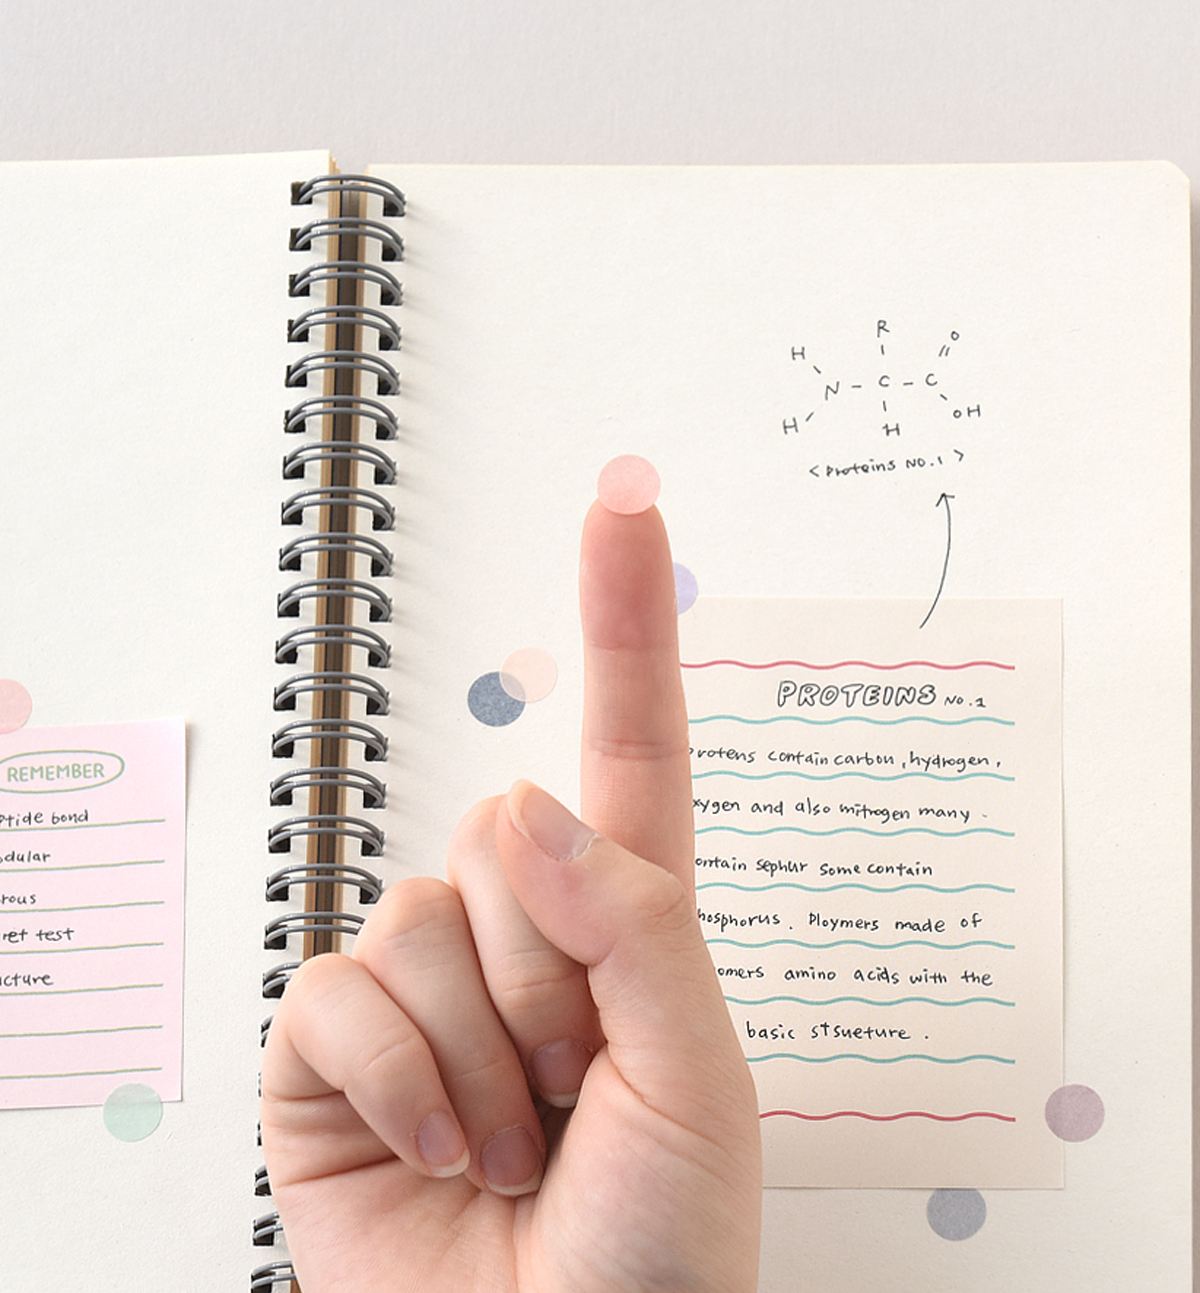 REMEMBER
ptide bond
odular
rous
ret test
ucture
R
H
O
N - C - C
H
H
OH
<Proteins NO.1>
PROTEINS NO.1
rotens contain carbon, hydrogen,
xygen and also mitrogen many -
ontain sephur some contain
hosphorus. Ploymers made of
omers amino acids with the
basic stsueture.